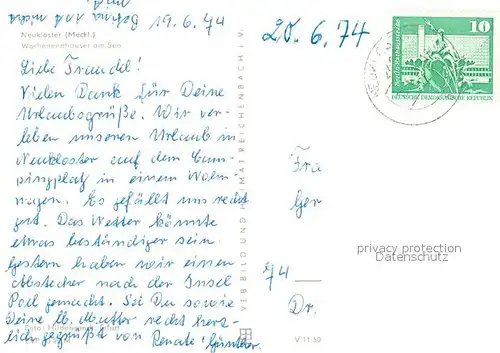 19.6.74
Neukloster (Meckl.)
Wochenendhäuser am See
Liebe Traudel!
Vielen Dank für Deine
Urlaubsgrüße. Wir ver-
leben unseren Urlaub in
Neukloster auf dem Cam-
pingplatz in einem Wohn-
wagen. Es gefällt uns recht
gut. Das Wetter könnte
etwas beständiger sein.
Gestern haben wir einen
Abstecher nach der Insel
Poel gemacht. Sei Du sowie
Deine lb. Mutter recht herz-
lich gegrüßt von Renate Günter.
VERLAG BILD UND HEIMAT REICHENBACH i. V.
20.6.74
10
DEUTSCHE DEMOKRATISCHE REPUBLIK
Fra
Ger
privacy protection
Datenschutz
74
Dr.
V 11 50